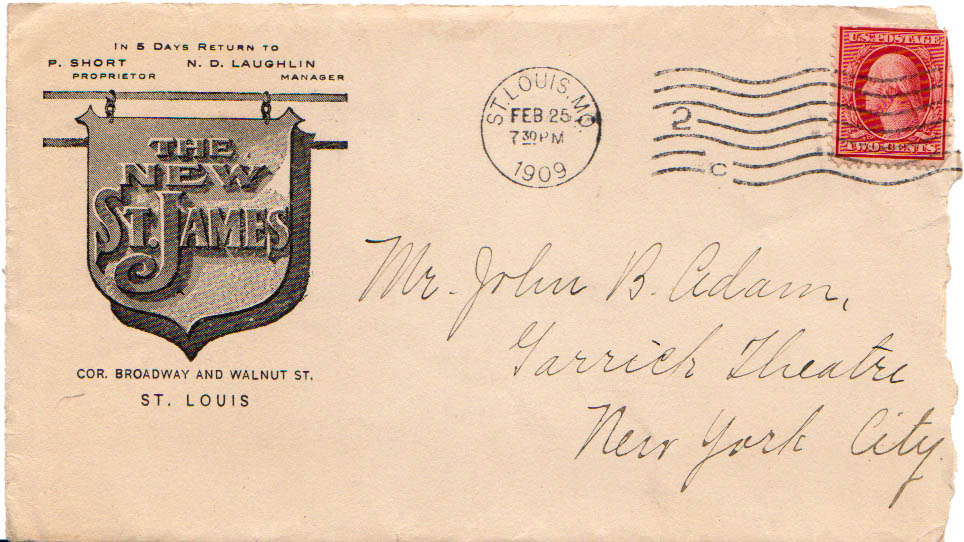 IN 5 DAYS RETURN TO
P. SHORT N. D. LAUGHLIN
PROPRIETOR MANAGER
THE
NEW
ST. JAMES
COR. BROADWAY AND WALNUT ST.
ST. LOUIS
ST. LOUIS, MO.
FEB 25
7 30 PM
1909
2
C
U.S. POSTAGE
TWO CENTS
Mr. John B. Adam,
Garrick Theatre
New York City.